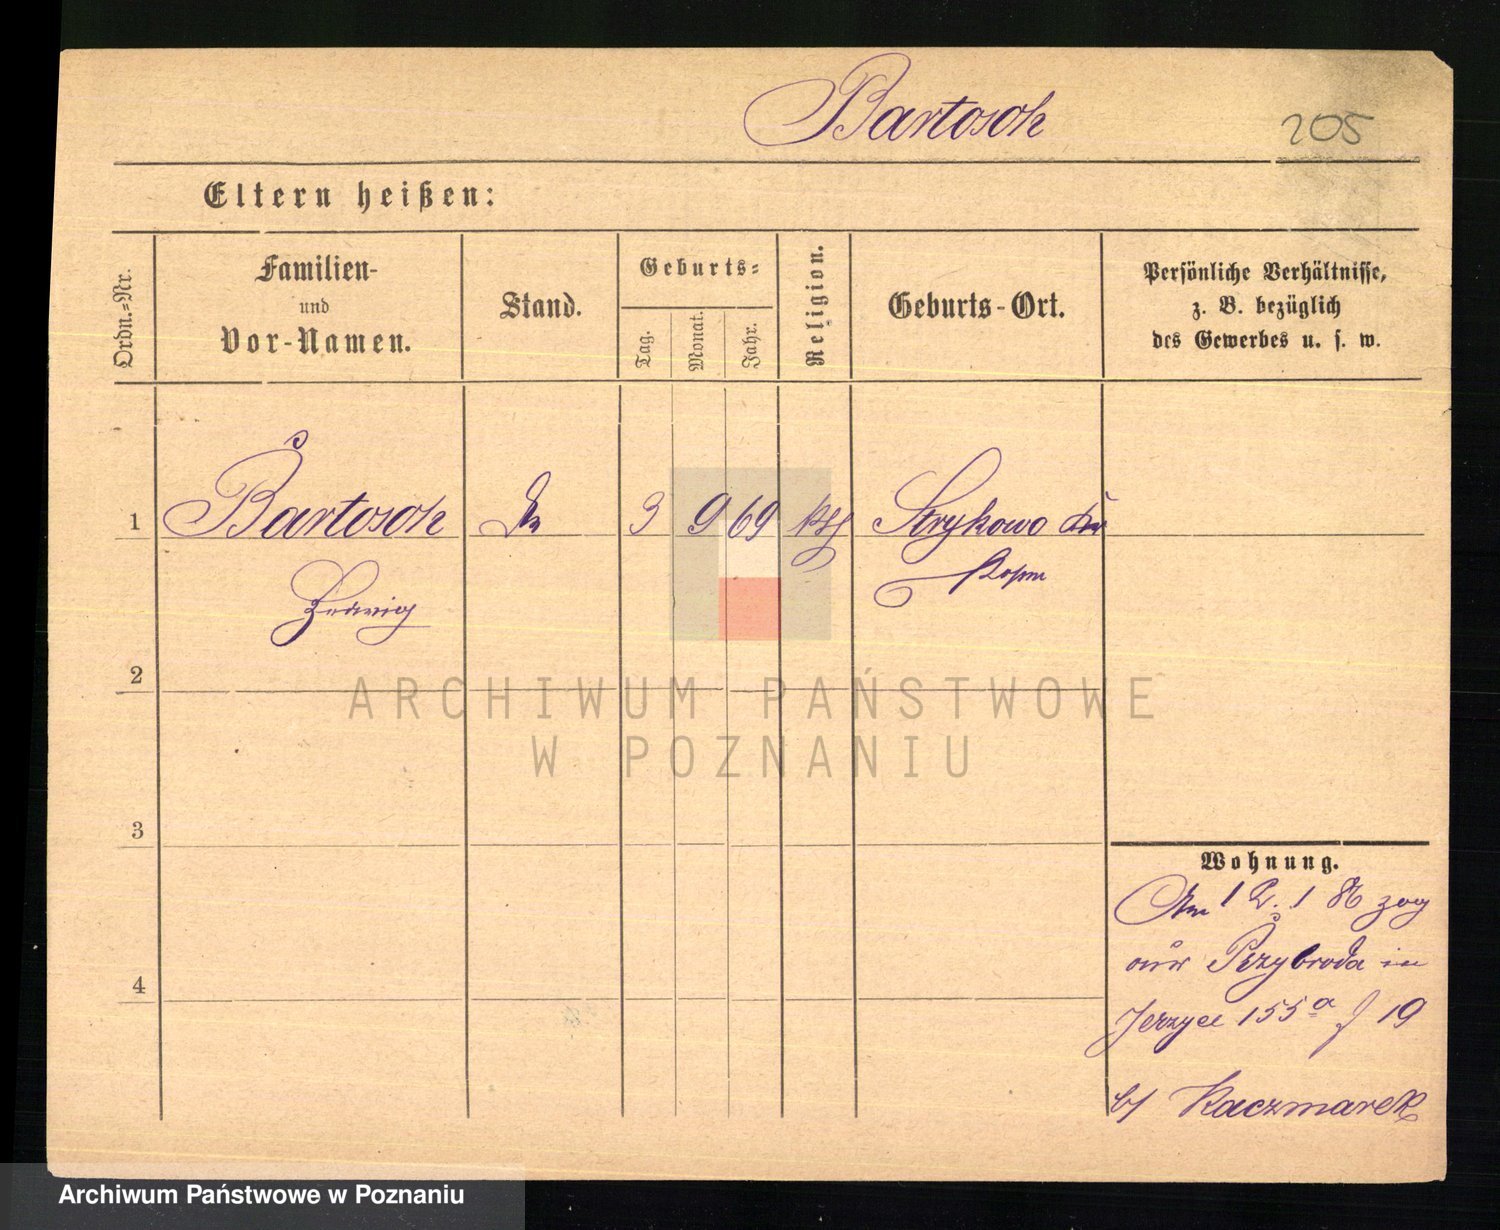 Bartosch
205
Eltern heißen:
Ordn.-Nr.
Familien-
und
Vor-Namen.
Stand.
Geburts-
Tag.
Monat.
Jahr.
Religion.
Geburts-Ort.
Persönliche Verhältnisse,
z. B. bezüglich
des Gewerbes u. s. w.
1
Bartosch
3
9
69
kth
Strykowo Kr
Posen
Hedwig
2
ARCHIWUM PAŃSTWOWE
W POZNANIU
3
Wohnung.
Am 12. 1 86 zog
aus Przybroda in
4
Jerzyce 155a f 19
b/ Kaczmarek
Archiwum Państwowe w Poznaniu